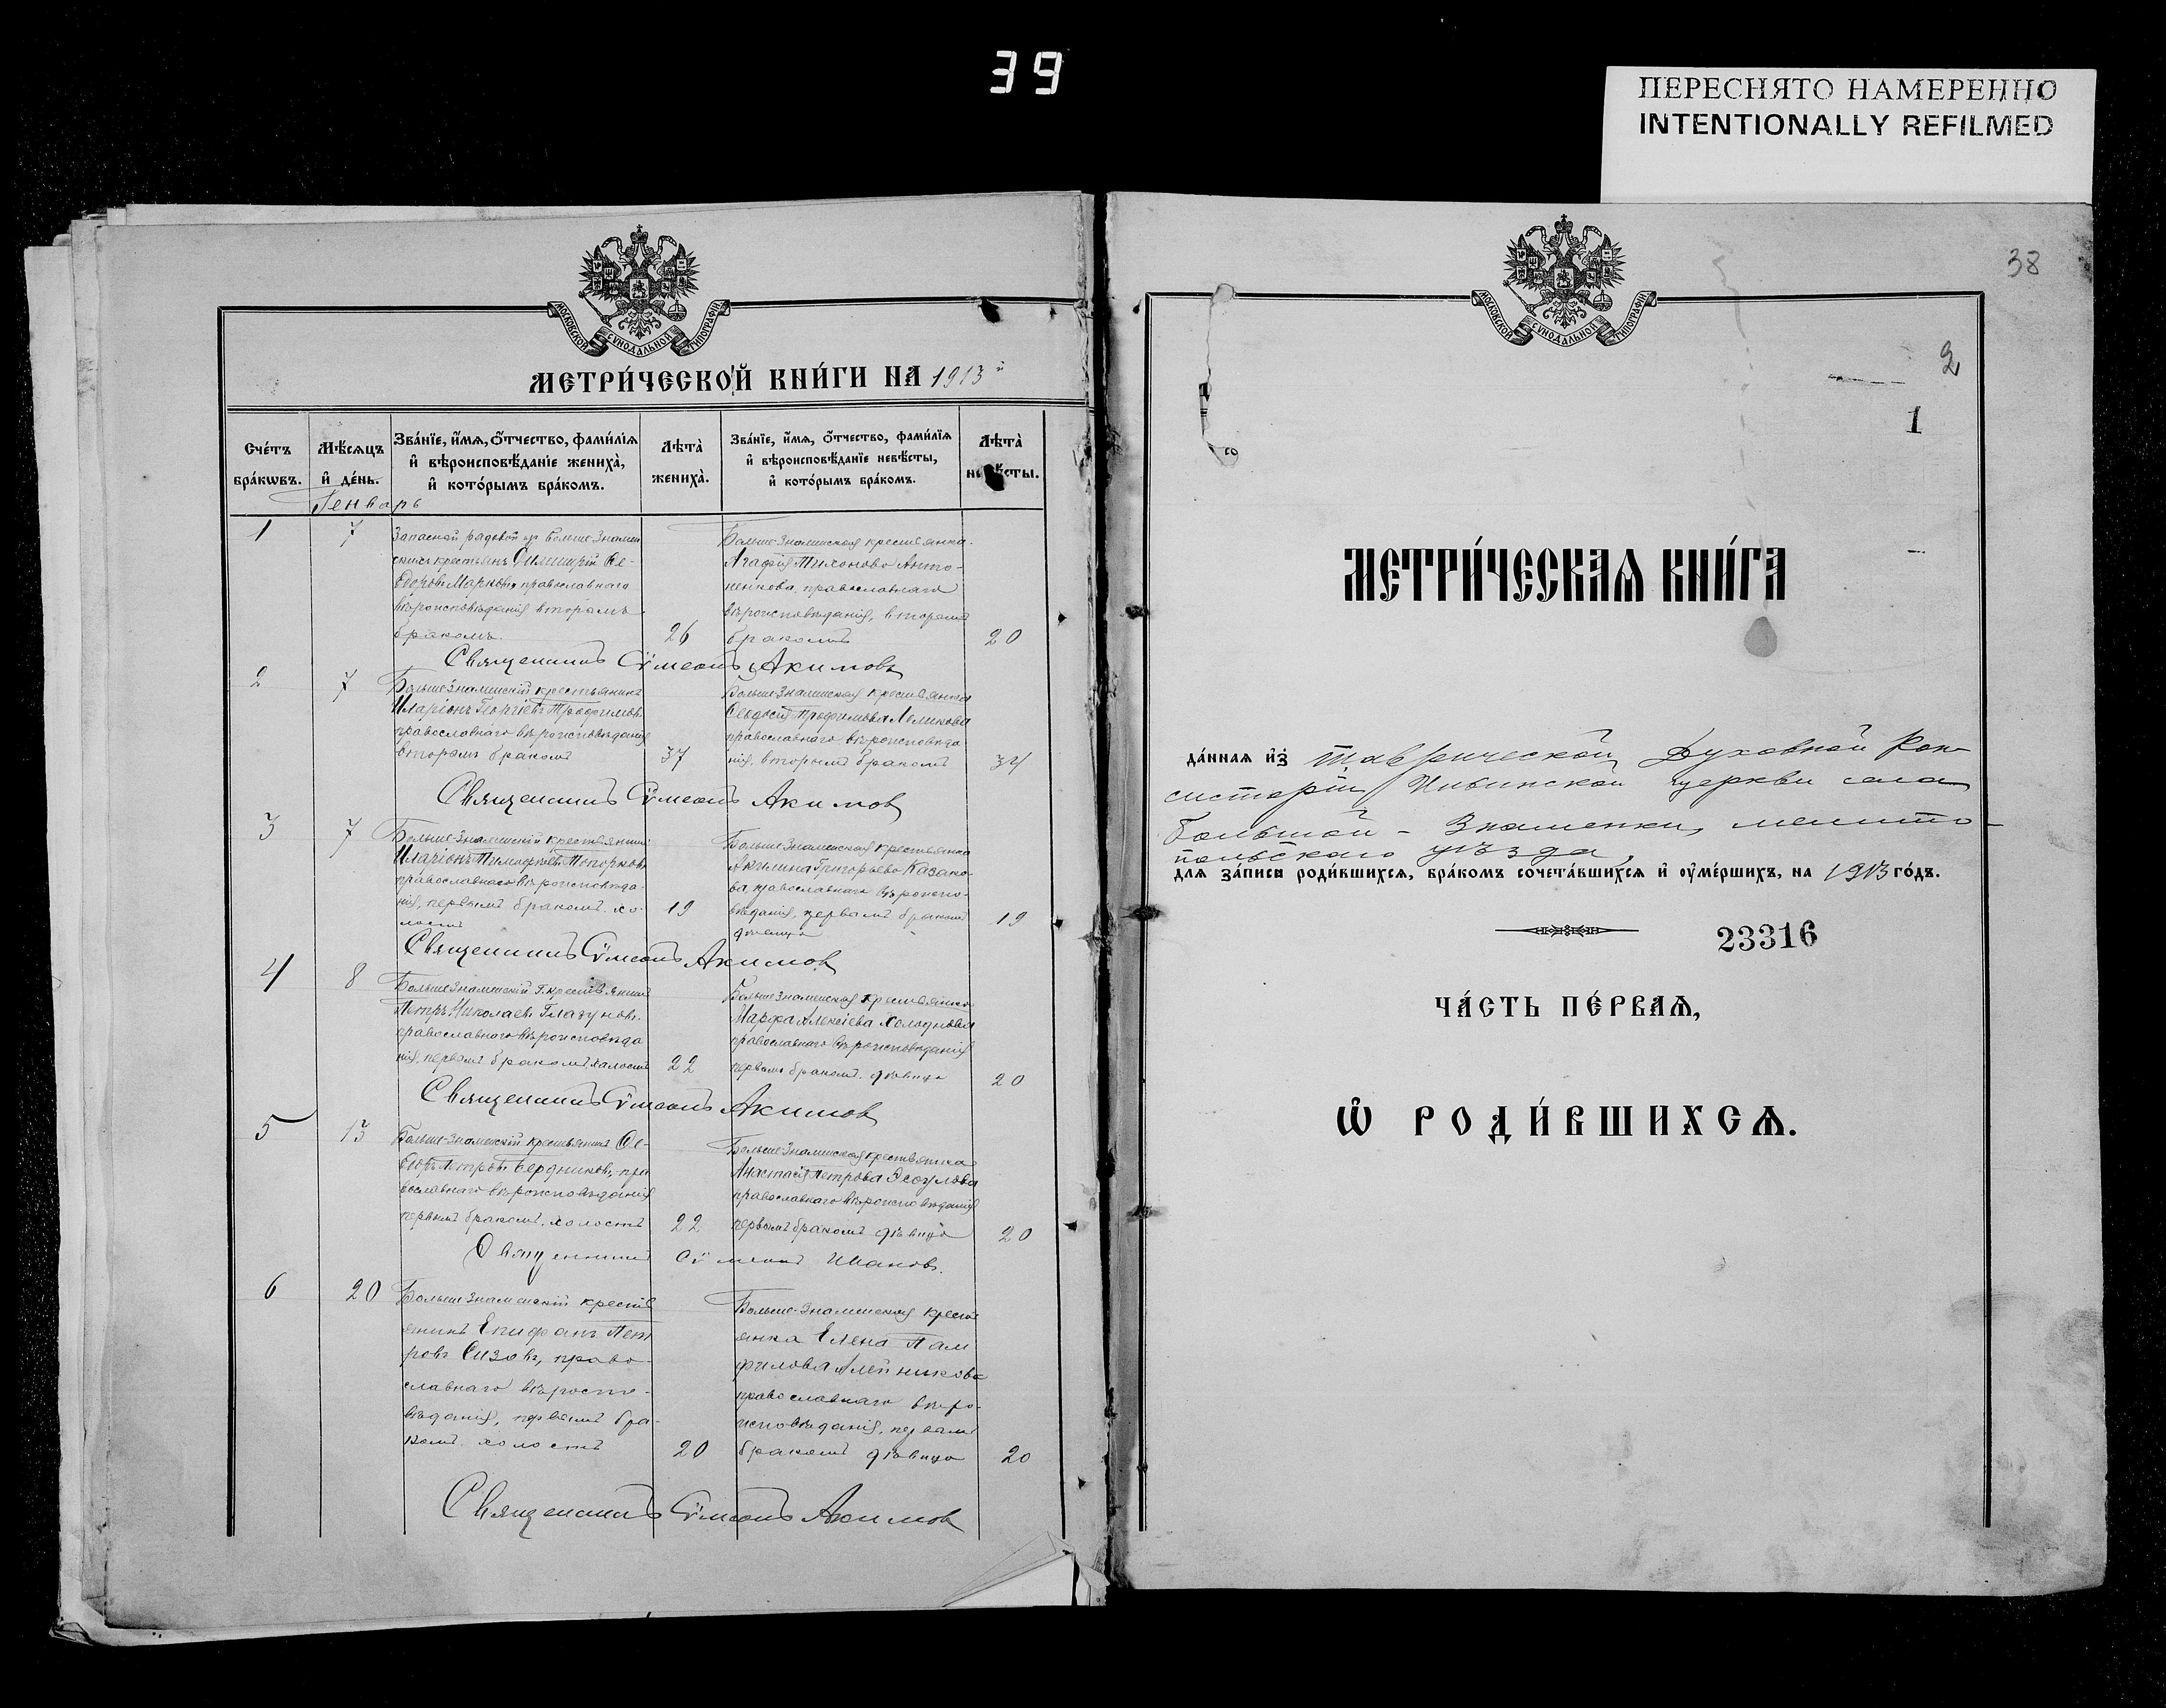 39
ПЕРЕСНЯТО НАМЕРЕННО
INTENTIONALLY REFILMED
МОСКОВСКОЙ СУНОДАЛЬНОЙ ТИПОГРАФІИ
МЕТРИ́ЧЕСКОЙ КНИ́ГИ НА 1913 й
Счéтъ бра́кѡвъ.
Мѣ́сяцъ и҆ де́нь.
Зва́нїе, и҆́мѧ, ѻ҆́тчество, фами́лїѧ
и҆ вѣроисповѣ́данїе жениха̀,
и҆ кото́рымъ бра́комъ.
Лѣта̀ жениха̀.
Зва́нїе, и҆́мѧ, ѻ҆́тчество, фами́лїѧ
и҆ вѣроисповѣ́данїе невѣ́сты,
и҆ кото́рымъ бра́комъ.
Лѣта̀ невѣ́сты.
Генварь
1
7
Запасной рядовой из Больше Знамен
скихъ крестьянъ Димитрій Ѳе-
доровъ Марковъ, православнаго
вѣроисповѣданія вторымъ
бракомъ.
26
Больше Знаменская крестьянка
Агафія Тихонова Анто-
ненкова, православнаго
вѣроисповѣданія, вторымъ
бракомъ
20
Священникъ Сѵмеонъ Акимовъ
2
7
Больше Знаменскій крестьянинъ
Иларіонъ Георгіевъ Трофимовъ
православнаго вѣроисповѣданія
вторымъ бракомъ
37
Больше Знаменская крестьянка
Ѳеодосія Трофимова
православнаго вѣроисповѣда
нія, вторымъ бракомъ
34
Священникъ Сѵмеонъ Акимовъ
3
7
Больше-Знаменскій крестьянинъ
Иларіонъ Тимофеевъ Топорковъ
православнаго вѣроисповѣда-
нія, первымъ бракомъ. хо-
лостъ
19
Больше Знаменская крестьянка
Акилина Григорьева Казако-
ва, православнаго вѣроиспо-
вѣданія, первымъ бракомъ
дѣвица
19
Священникъ Сѵмеонъ Акимовъ
4
8
Больше Знаменскій крестьянинъ
Петръ Николаевъ Глазуновъ.
православнаго вѣроисповѣда
нія, первымъ бракомъ. холостъ
22
Больше Знаменская крестьянка
Марфа Алексіева Холоднова
православнаго вѣроисповѣданія
первымъ бракомъ. дѣвица
20
Священникъ Сѵмеонъ Акимовъ
5
13
Больше-Знаменскій крестьянинъ Ѳе-
Петровъ Бердниковъ, пра
вославнаго вѣроисповѣданія
первымъ бракомъ. холостъ
22
Больше Знаменская крестьянка
Анастасія Петрова Эсаулова
православнаго вѣроисповѣданія
первымъ бракомъ дѣвица
20
Священникъ Сѵмеонъ
6
20
Больше Знаменскій кресть
янинъ Епифанъ Пет
ровъ Сизовъ, право-
славнаго вѣроиспо-
вѣданія, первымъ бра-
комъ. холостъ
20
Больше-Знаменская кресть
янка Елена Пам
филова Алейникова
православнаго вѣро-
исповѣданія, первымъ
бракомъ дѣвица
20
Священникъ Сѵмеонъ Акимовъ
38
МОСКОВСКОЙ СУНОДАЛЬНОЙ ТИПОГРАФІИ
2
1
МЕТРИ́ЧЕСКАѦ КНИ́ГА
да́ннаѧ и҆з̾ Таврической Духовной Кон-
систоріи церкви села
Большой - Знаменки, мелито-
польскаго уѣзда,
для за́писи роди́вшихсѧ, бра́комъ сочета́вшихсѧ и҆ ᲂу҆ме́ршихъ, на 1913 го́дъ.
23316
ЧА́СТЬ ПЕ́РВАѦ,
Ѽ РОДИ́ВШИХСѦ.